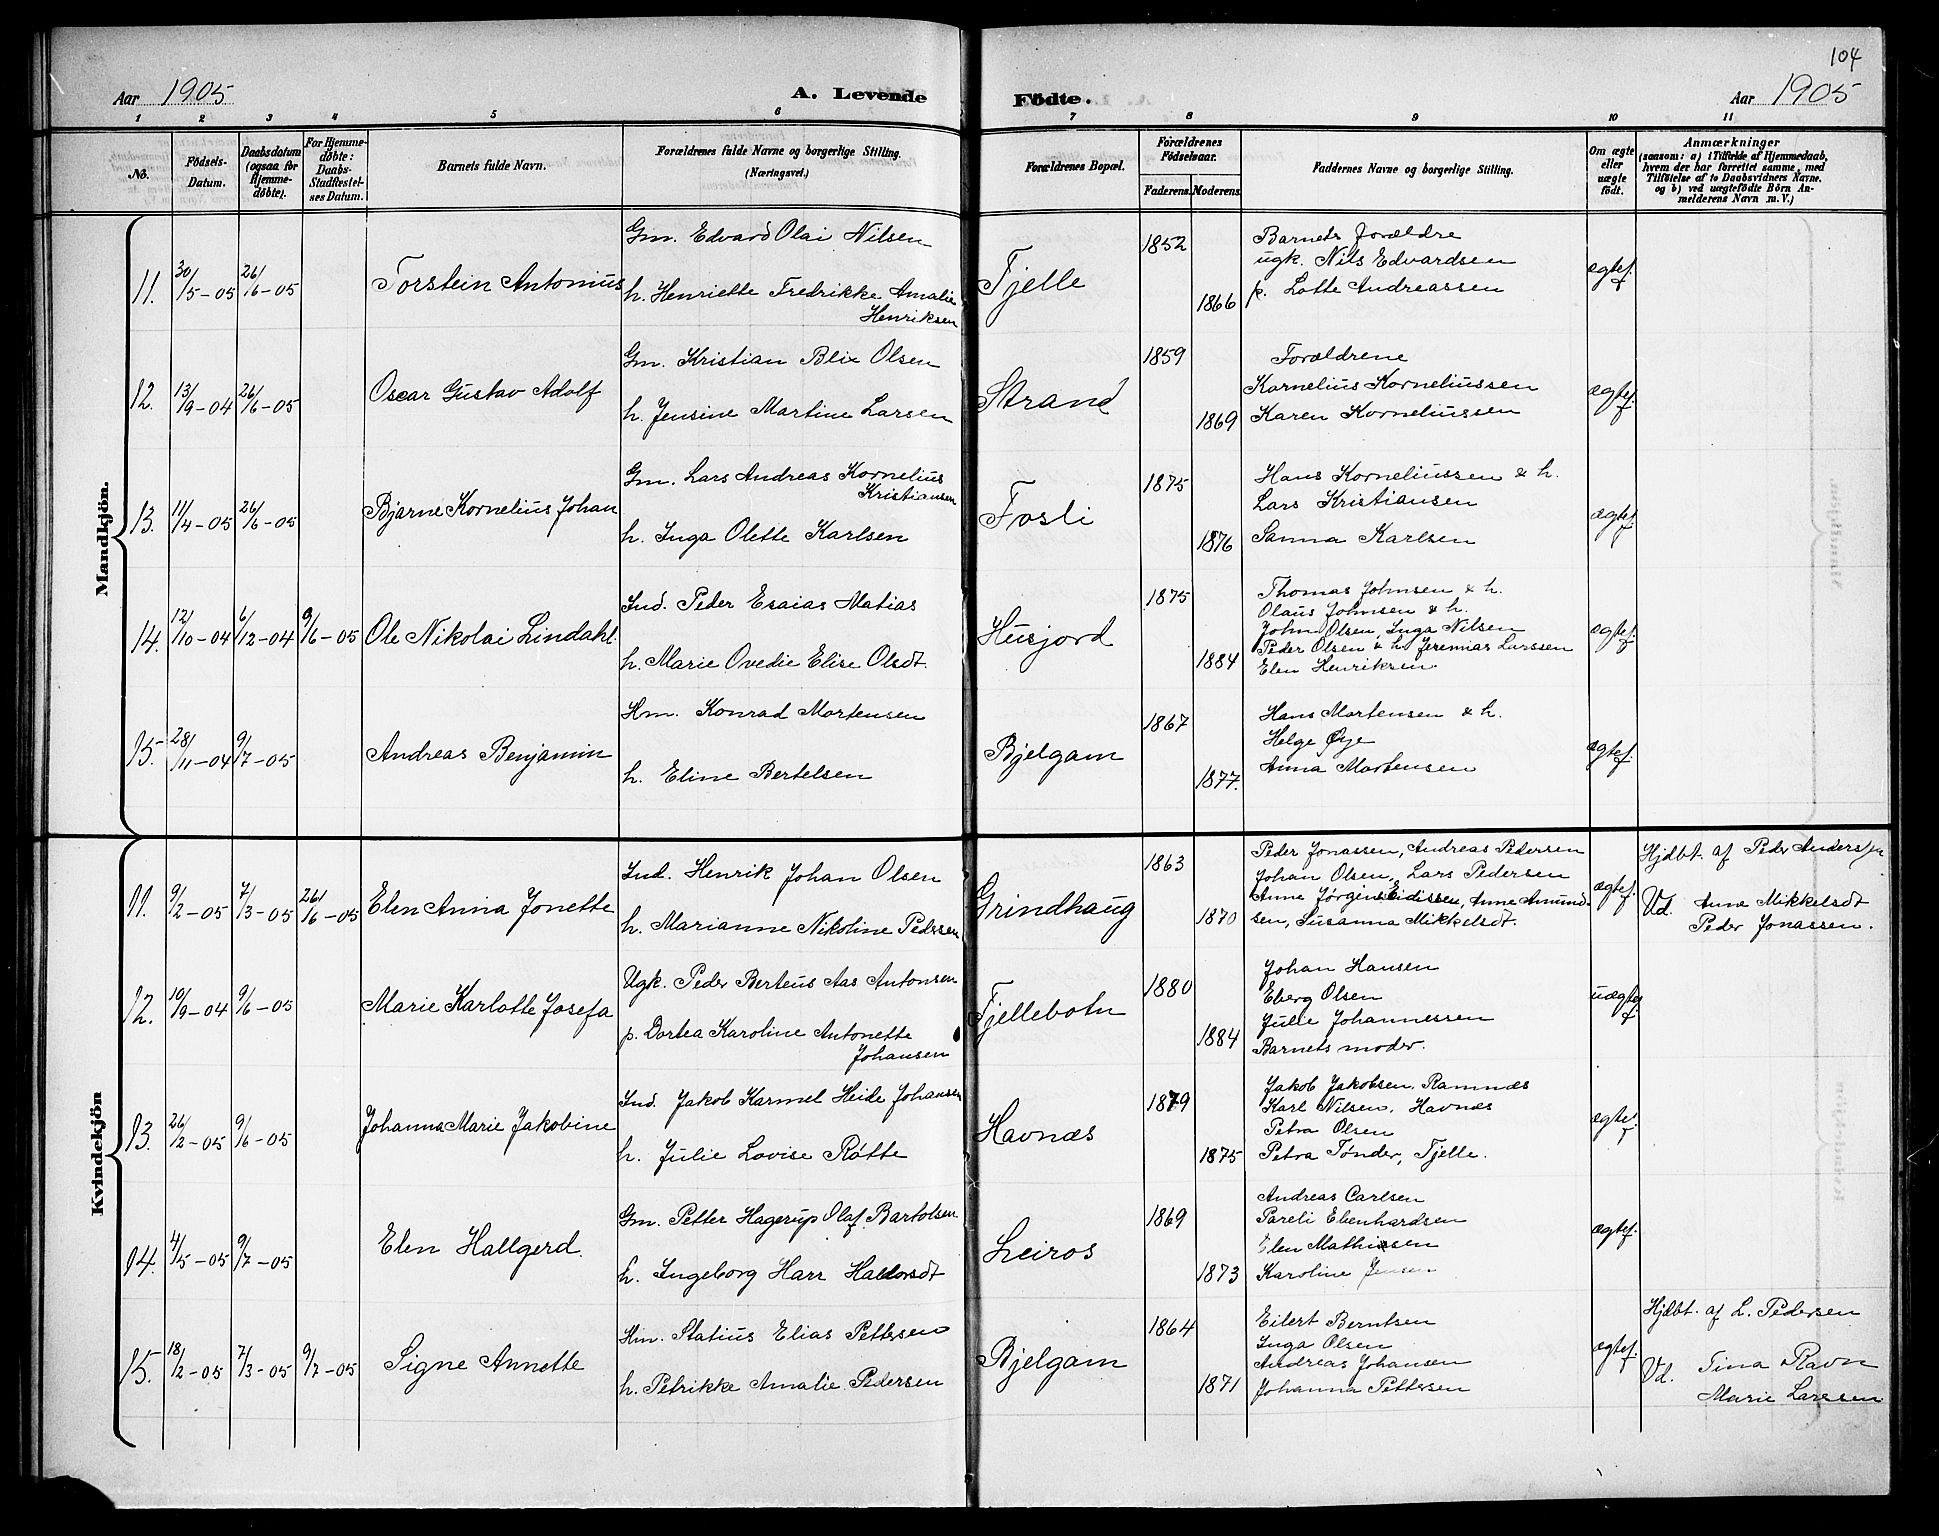 104
Aar 1905 A. Levende Födte. Aar 1905
1 2 3 4 5 6 7 8 9 10 11
No.
Födsels-
Datum.
Daabsdatum
(ogsaa for
Hjemme-
döbte).
For Hjemme-
döbte:
Daabs-
Stadfæstel-
ses Datum.
Barnets fulde Navn.
Forældrenes fulde Navne og borgerlige Stilling.
(Næringsvei.)
Forældrenes Bopæl.
Forældrenes
Födselsaar.
Faderens. Moderens.
Faddernes Navne og borgerlige Stilling.
Om ægte
eller
uægte
födt.
Anmærkninger
(saasom: a) i Tilfælde af Hjemmedaab,
hvem der har forrettet samme, med
Tilföielse af to Daabsvidners Navne.
og b) ved uægtefödte Börn An-
melderens Navn m. V.)
Mandkjön.
11. 30/5-05 26/6-05 Torstein Antonius
Gm. Edvard Olai Nilsen
h. Henriette Fredrikke Amalie
Henriksen
Fjelle 1852 1866
Barnets forældre
ugk. Nils Edvardsen
p. Lotte Andreassen
ægtef.
12. 13/9-04 26/6-05 Oscar Gustav Adolf
Gm. Kristian Blix Olsen
h. Jensine Martine Larsen
Strand 1859 1869
Forældrene
Kornelius Korneliussen
Karen Korneliussen
ægtef.
13. 11/4-05 26/6-05 Bjarne Kornelius Johan
Gm. Lars Andreas Kornelius
Kristiansen
h. Inga Olette Karlsen
Fosli 1875 1876
Hans Korneliussen & h.
Lars Kristiansen
Sanna Karlsen
ægtef.
14. 12/10-04 6/12-04 9/6-05 Ole Nikolai Lindahl.
Ind. Peder Esaias Matias
h. Marie Ovedie Elise Olsdt.
Husjord 1875 1884
Thomas Johnsen & h.
Olaus Johnsen & h.
John Olsen, Inga Nilsen
Peder Olsen & h. Jeremias Larssen
Elen Henriksen.
ægtef.
15. 28/11-04 9/7-05 Andreas Benjamin
Hm. Konrad Mortensen
h. Eline Bertelsen
Bjelgam 1867 1877.
Hans Mortensen & h.
Helge Øye
Anna Mortensen
ægtef.
Kvindekjön
11. 9/2-05 7/3-05 26/6-05 Elen Anna Jonette
Ind. Henrik Johan Olsen
h. Marianne Nikoline Pedersen
Grindhaug 1863 1870
Peder Jonassen, Andreas Pedersen
Johan Olsen, Lars Pedersen
Anne Jørgine Eidissen, Anne Amund-
sen, Susanna Mikkelsdt.
ægtef.
Hjdbt. af Peder Andersen
Vd. Anne Mikkelsdt
Peder Jonassen.
12. 10/9-04 9/6-05 Marie Karlotte Josefa
Ugk. Peder Berteus Aas Antonsen
p. Dortea Karoline Antonette
Johansen
Fjellebotn 1880 1884
Johan Hansen
Eberg Olsen
Julie Johannessen
Barnets moder.
uægtef.
13. 26/2-05 9/6-05 Johanna Marie Jakobine
Ind. Jakob Karmel Heide Johansen
h. Julie Lovise Røtte
Havnæs 1879 1875
Jakob Jakobsen, Ramnæs
Karl Nilsen, Havnæs
Petra Olsen
Petra Tønder, Fjelle.
ægtef.
14. 4/5-05 9/7-05 Elen Hallgerd.
Gm. Petter Hagerup Olaf Bartolsen
h. Ingeborg Harr Haldorsdt
Leiros 1869 1873
Andreas Carlsen
Pareli Ebenhardsen
Elen Mathisen
Karoline Jensen
ægtef.
15. 18/2-05 7/3-05 9/7-05 Signe Annette
Hm. Statius Elias Pettersen
h. Petrikke Amalie Pedersen
Bjelgam 1864 1871
Eilert Berntsen
Inga Olsen
Andreas Johansen
Johanna Pettersen
ægtef.
Hjdbt. af L. Pedersen
Vd. Tina Ravn
Marie Larssen